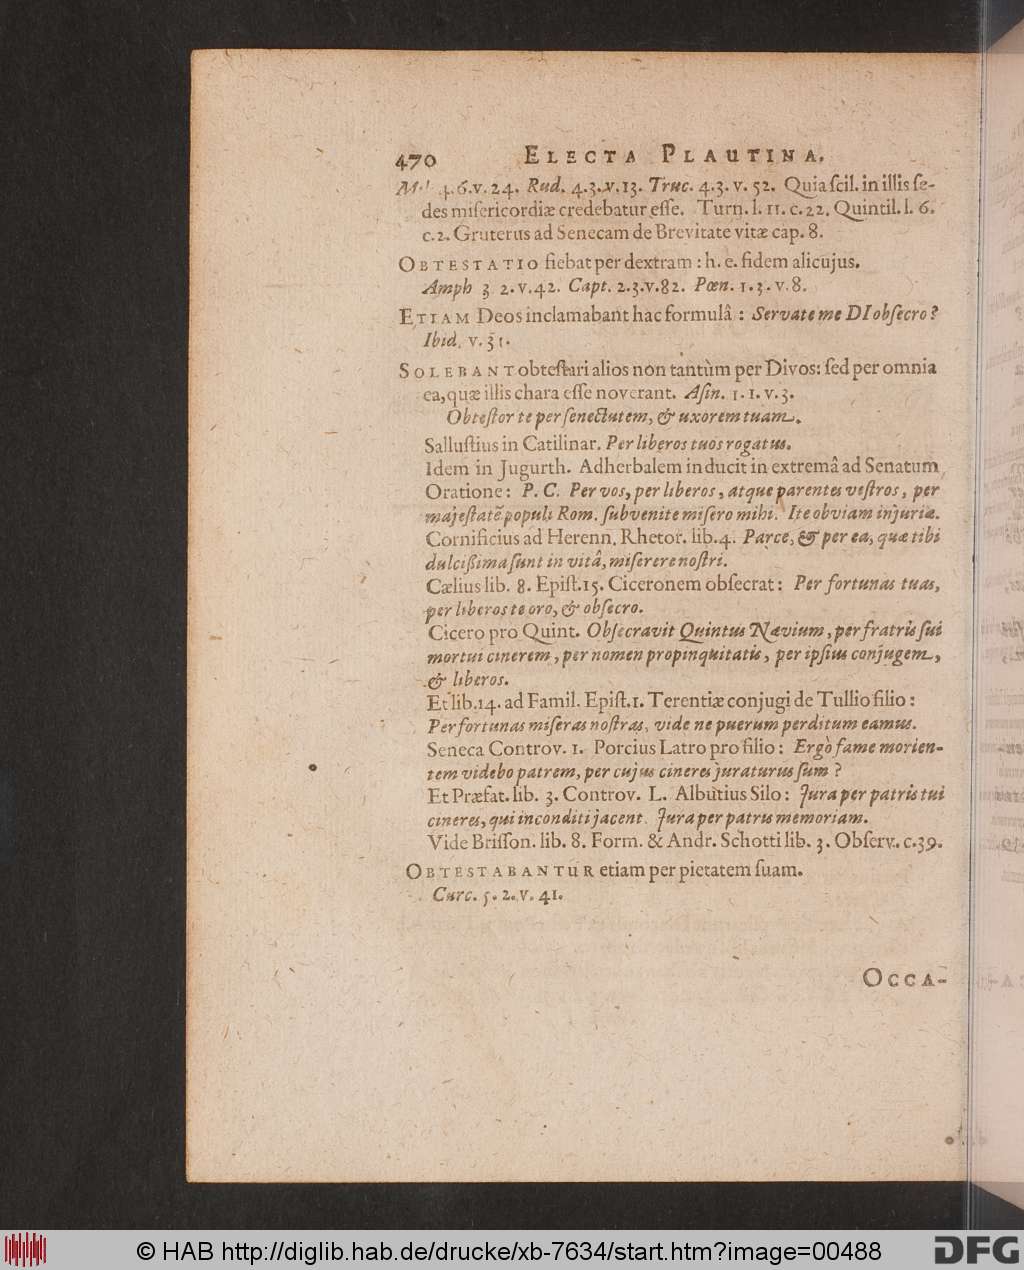 470 ELECTA PLAUTINA.
Mil 4.6.v.24. Rud. 4.3.v.13. Truc. 4.3. v. 52. Quia scil. in illis se-
des misericordiæ credebatur esse. Turn. l. 11. c.22. Quintil. l. 6.
c.2. Gruterus ad Senecam de Brevitate vitæ cap. 8.
OBTESTATIO fiebat per dextram : h. e. fidem alicujus.
Amph 3 2. v.42. Capt. 2.3.v.82. Pœn. 1.3. v.8.
ETIAM Deos inclamabant hac formulâ : Servate me DI obsecro?
Ibid. v.31.
SOLEBANT obtestari alios non tantùm per Divos: sed per omnia
ea, quæ illis chara esse noverant. Asin. 1. 1. v.3.
Obtestor te per senectutem, & uxorem tuam.
Sallustius in Catilinar. Per liberos tuos rogatus.
Idem in Jugurth. Adherbalem inducit in extremâ ad Senatum
Oratione: P. C. Per vos, per liberos, atque parentes vestros, per
majestatē populi Rom. subvenite misero mihi. Ite obviam injuriæ.
Cornificius ad Herenn. Rhetor. lib.4. Parce, & per ea, quæ tibi
dulcissima sunt in vitâ, miserere nostri.
Cælius lib. 8. Epist.15. Ciceronem obsecrat: Per fortunas tuas,
per liberos te oro, & obsecro.
Cicero pro Quint. Obsecravit Quintus Nævium, per fratris sui
mortui cinerem, per nomen propinquitatis, per ipsius conjugem,
& liberos.
Et lib.14. ad Famil. Epist.1. Terentiæ conjugi de Tullio filio:
Per fortunas miseras nostras, vide ne puerum perditum eamus.
Seneca Controv. 1. Porcius Latro pro filio: Ergò fame morien-
tem videbo patrem, per cujus cineres juraturus sum ?
Et Præfat. lib. 3. Controv. L. Albutius Silo: Jura per patris tui
cineres, qui inconditi jacent. Jura per patris memoriam.
Vide Brisson. lib. 8. Form. & Andr. Schotti lib. 3. Observ. c.39.
OBTESTABANTUR etiam per pietatem suam.
Curc. 5. 2. v. 41.
OCCA-
© HAB http://diglib.hab.de/drucke/xb-7634/start.htm?image=00488
DFG